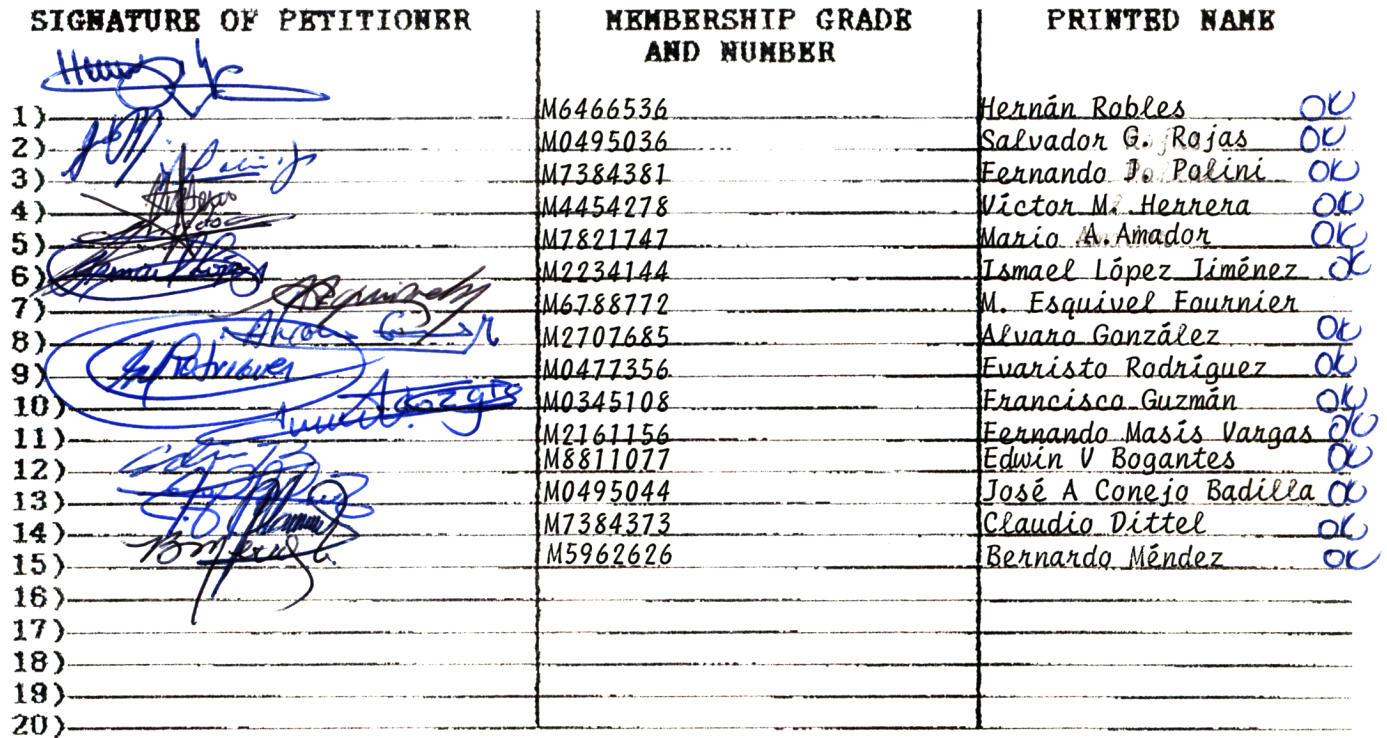 SIGNATURE OF PETITIONER MEMBERSHIP GRADE AND NUMBER PRINTED NAME
1) M6466536 Hernán Robles OK
2) M0495036 Salvador G. Rojas OK
3) M7384381 Fernando J. Polini OK
4) M4454278 Víctor M. Herrera OK
5) M7821747 Mario A. Amador OK
6) M2234144 Ismael López Jiménez OK
7) M6788772 M. Esquivel Fournier
8) M2707685 Alvaro González OK
9) M0477356 Evaristo Rodríguez OK
10) M0345108 Francisco Guzmán OK
11) M2161156 Fernando Masís Vargas OK
12) M8811077 Edwin V Bogantes OK
13) M0495044 José A Conejo Badilla OK
14) M7384373 Claudio Dittel OK
15) M5962626 Bernardo Méndez OK
16)
17)
18)
19)
20)